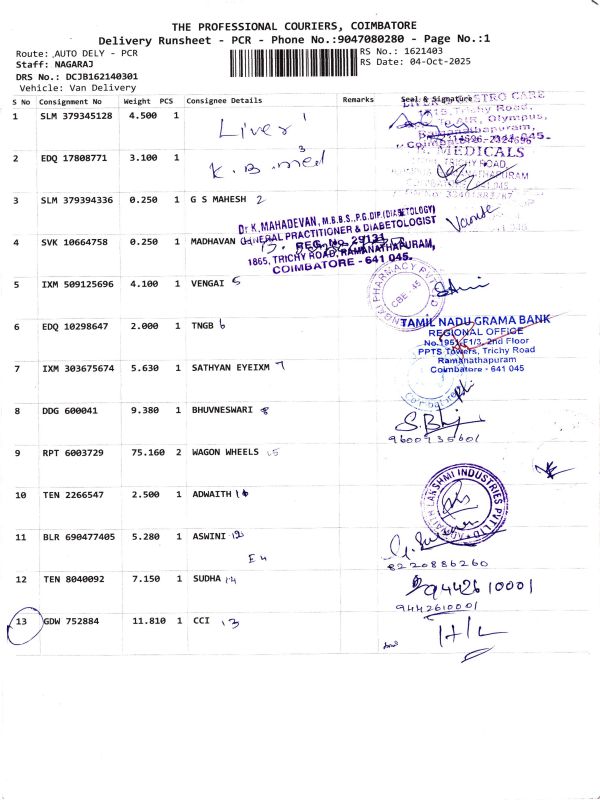 THE PROFESSIONAL COURIERS, COIMBATORE
Delivery Runsheet - PCR - Phone No.:9047080280 - Page No.:1
Route: AUTO DELY - PCR
RS No.: 1621403
Staff: NAGARAJ
RS Date: 04-Oct-2025
DRS No.: DCJB162140301
Vehicle: Van Delivery
S No Consignment No Weight PCS Consignee Details Remarks Seal & Signature
1 SLM 379345128 4.500 1 Liver 1
2 EDQ 17808771 3.100 1 K.B. med 3
MEDICALS
TRICHY ROAD,
3 SLM 379394336 0.250 1 G S MAHESH 2
4 SVK 10664758 0.250 1 MADHAVAN
Dr K. MAHADEVAN, M.B.B.S., P.G.DIP.(DIABETOLOGY)
GENERAL PRACTITIONER & DIABETOLOGIST
REG. No. 29131
1865, TRICHY ROAD, RAMANATHAPURAM,
COIMBATORE - 641 045.
5 IXM 509125696 4.100 1 VENGAI 5
PHARMACY PVT LTD
CBE - 45
6 EDQ 10298647 2.000 1 TNGB 6
TAMIL NADU GRAMA BANK
REGIONAL OFFICE
2nd Floor
PPTS Towers, Trichy Road
Ramanathapuram
Coimbatore - 641 045
7 IXM 303675674 5.630 1 SATHYAN EYEIXM 7
8 DDG 600041 9.380 1 BHUVNESWARI 8
9600935601
9 RPT 6003729 75.160 2 WAGON WHEELS 15
10 TEN 2266547 2.500 1 ADWAITH
ADWAITH LAKSHMI INDUSTRIES PVT LTD
11 BLR 690477405 5.280 1 ASWINI 12
8220886260
12 TEN 8040092 7.150 1 SUDHA 14
9442610001
9442610001
13 GDW 752884 11.810 1 CCI 13